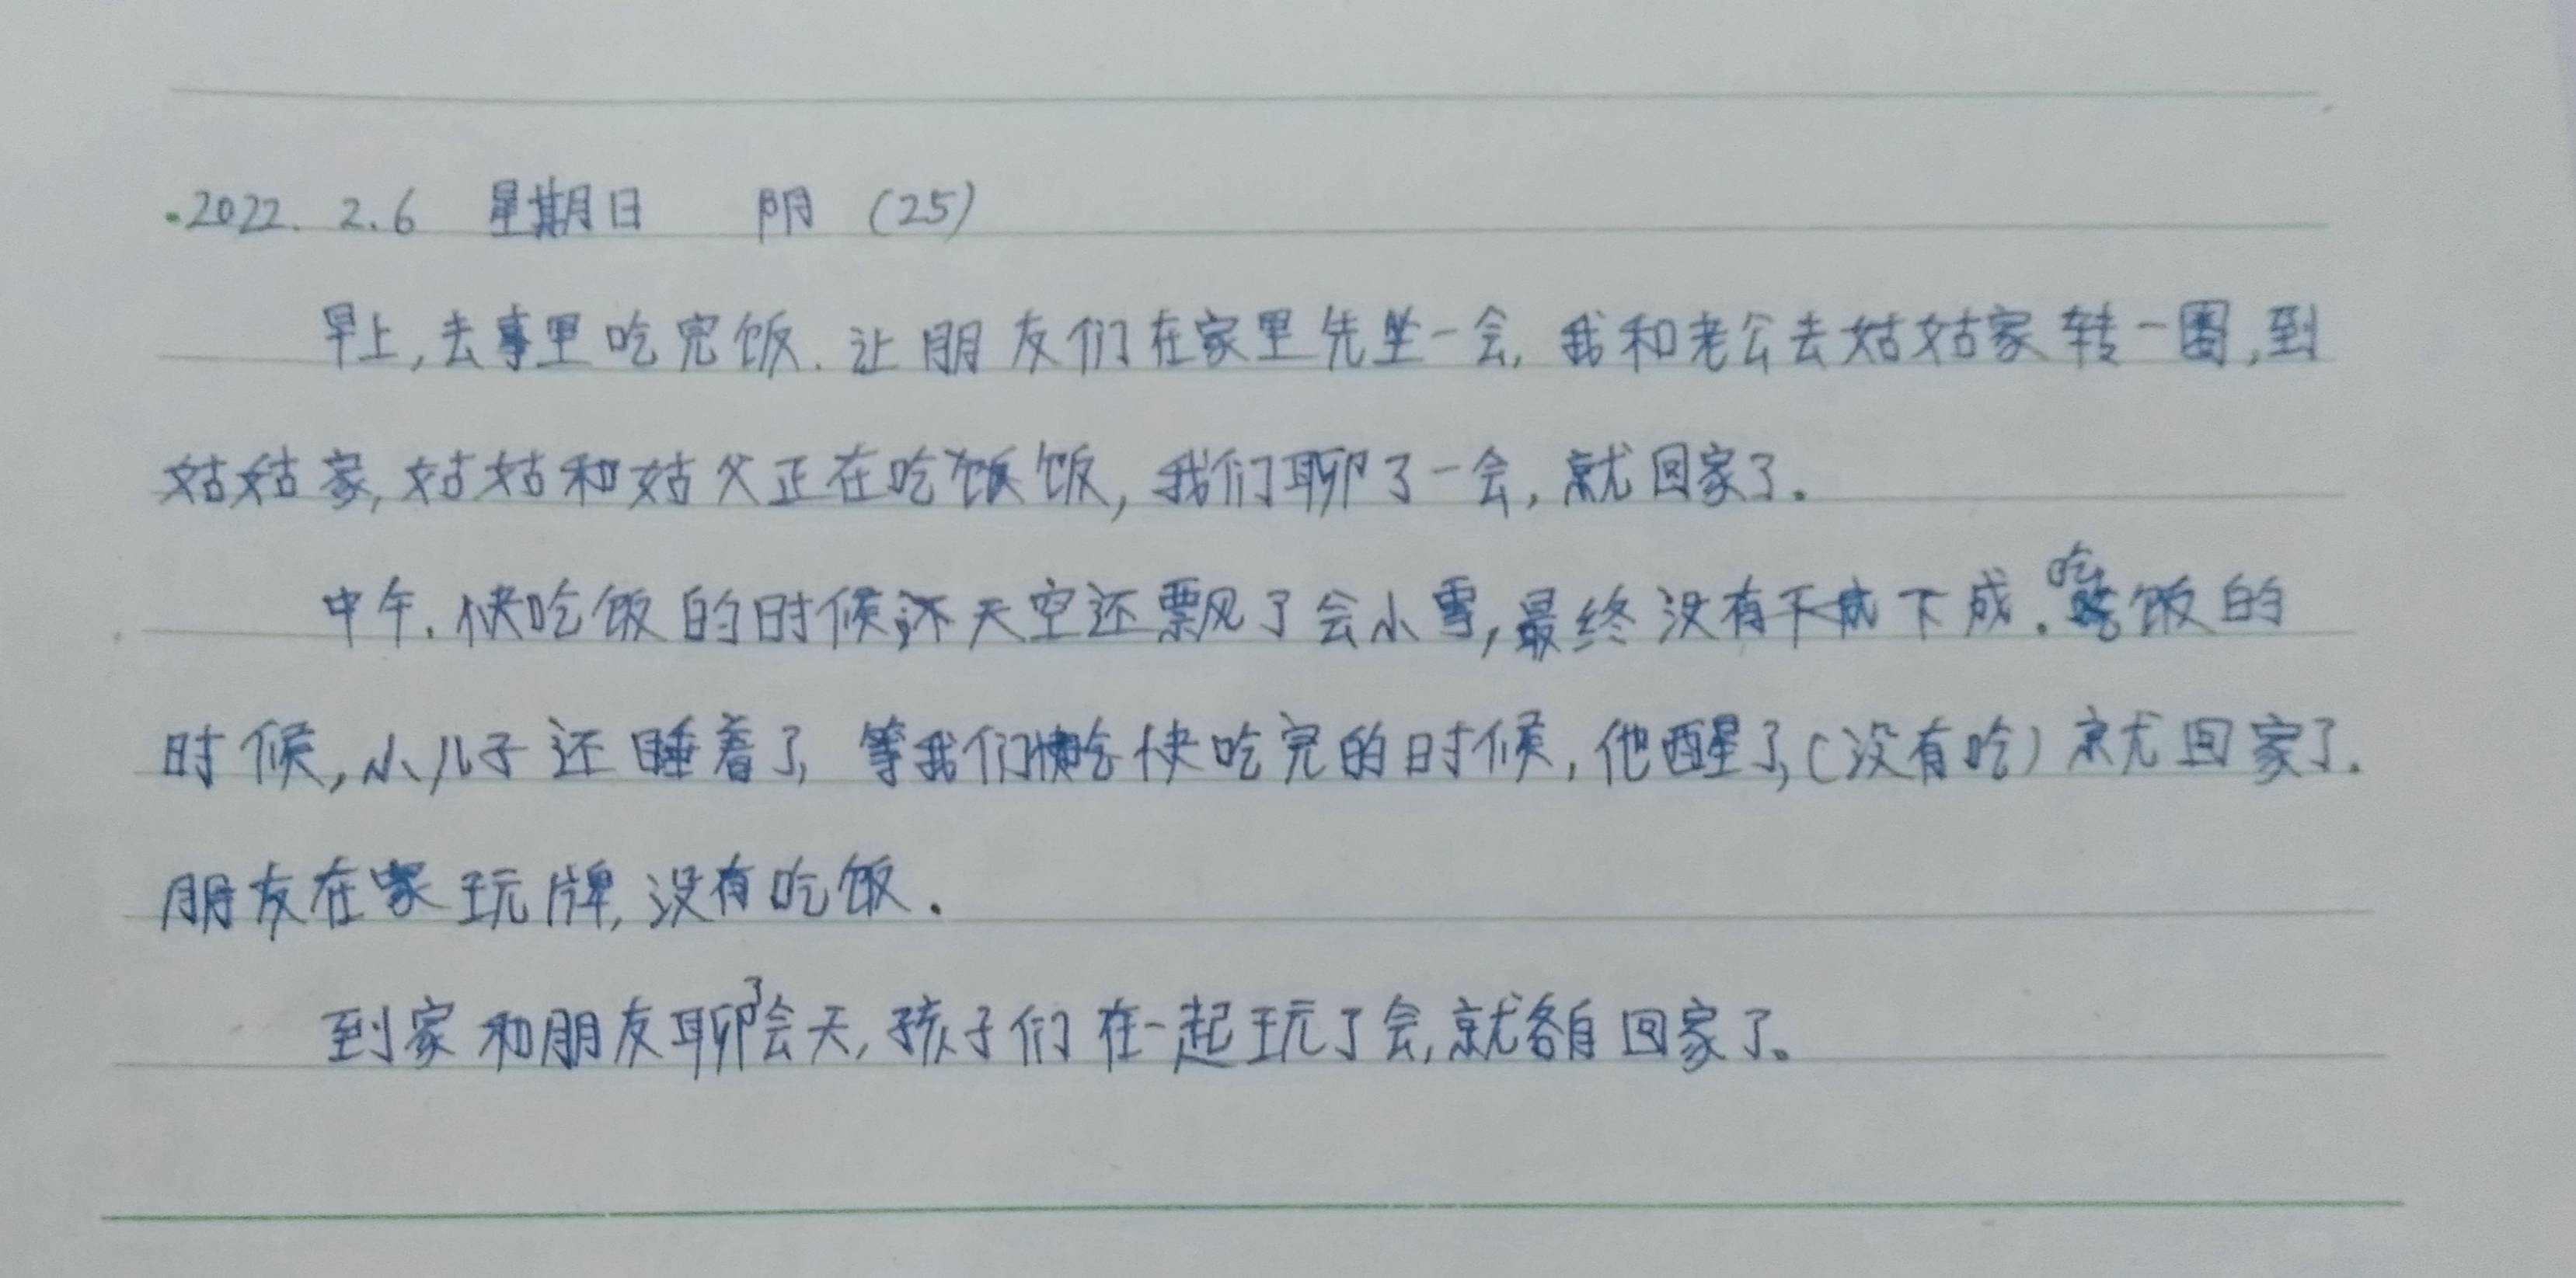 2022. 2.6 星期日 阴 (25)
早上,去事里吃完饭.让朋友们在家里先坐一会,我和老公去姑姑家转一圈,到
姑姑家,姑姑和姑父正在吃饭饭,我们聊了一会,就回家了。
中午.快吃饭的时候还天空还飘了会小雪,最终没有下成下成.吃饭的
时候,小儿子还睡着了,等我们快吃快吃完的时候,他醒了,(没有吃)就回家了.
朋友在家玩牌,没有吃饭.
到家和朋友聊了会天,孩子们在一起玩了会,就各自回家了。